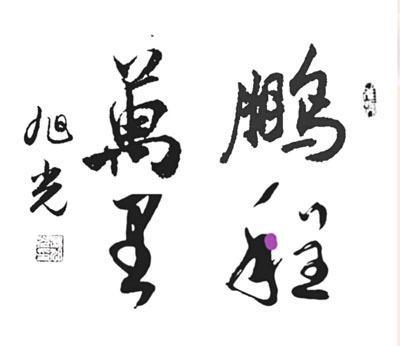 鹏程
萬里
旭光